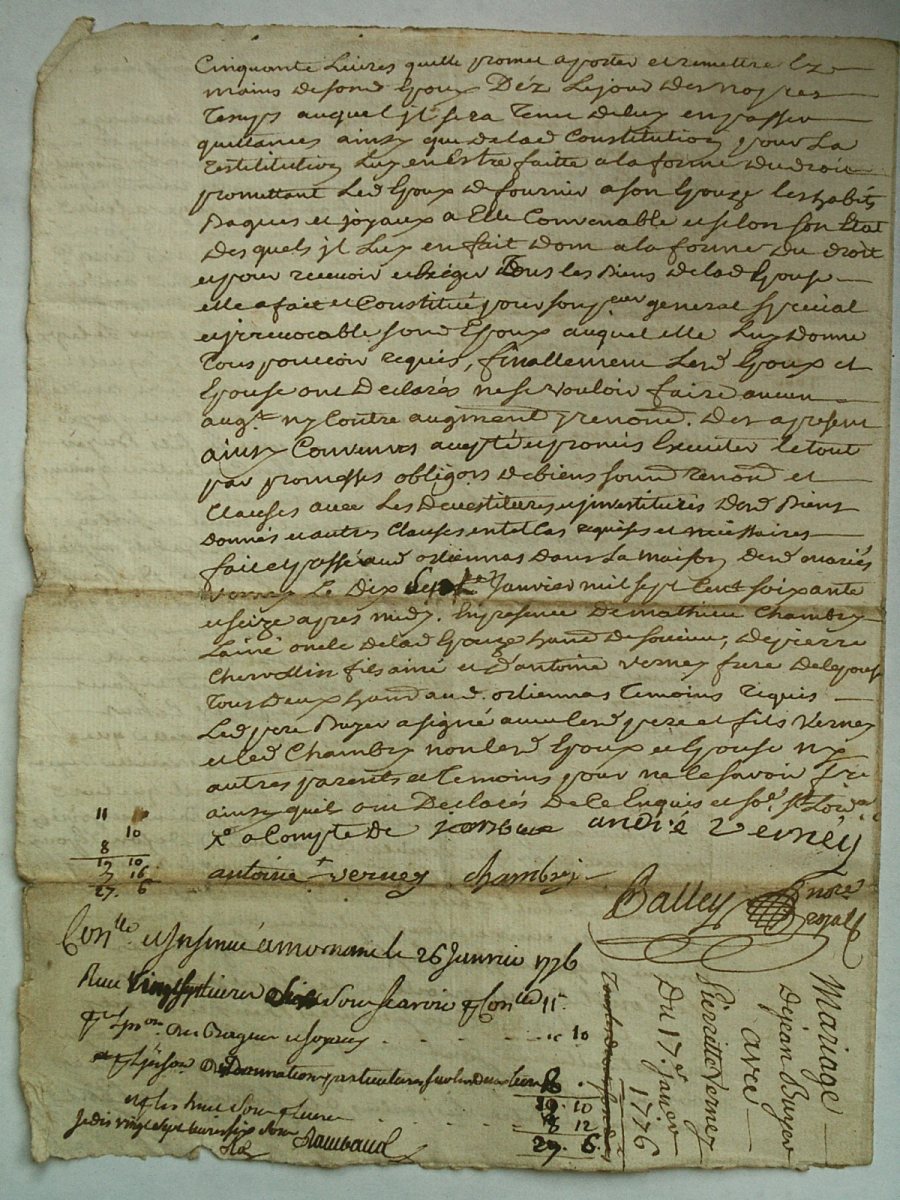 Cinquante Livres quelle promet aporter et remettre Ez
mains de sond Epoux Déz Le jour des nopces
Temps auquel jl sera Tenu de luy en passer
quittances ainsy que de lad Constitution pour La
restitution Luy en Estre faitte a la forme du droit
promettant Led Epoux de fournir a son Epouze les habits
Bagues et joyaux a Elle Convenable et selon son Etat
Desquels jl Luy en fait Dom a la forme Du droit
et pour recevoir et Exiger Tous les Biens de lad Epouse
elle a fait et Constitué pour son general special
et jrrevocable sond Epoux auquel elle Luy donne
Tous pouvoir requis, finallement Lesd Epoux et
Epouse ont Declarés ne se vouloir faire aucun
augt ny Contre augment y renond. Des apresent
ainsy Convenus accepté et promis Executer le tout
par promesses obligons de biens soumd renond et
Clauses avec Les Devestitures et jnvestitures desd Biens
donnés et autres Clauses en tel Cas requises et nécéssaires
fait et passé aud orliennas Dans La maison desd mariés
Verney Le Dix sept janvier mil sept Cent soixante
et seize apres midy. En presence De mathieu Chambry
Lainé oncle de lad Epouze hand de soucieu, de pierre
Chervollin fils ainé et d'antoine verney frere de lepouse
Tous deux hand aud. orliennas Temoins requis
Led pere Buyer a signé avec lesd pere et fils Verney
et led Chambry non lesd Epoux et Epouse ny
autres parents et Temoins pour ne le savoir
ainsy quil ont Declarés De Ce Enquis et
a Compte de andré Verney
antoine verney chambry
Balley nore
royal
11
10
8
19 10
7 16
27. 6
Conlle et jnsinué a mornant le 26 janvier 1776
Reçu vingt sept livres six sous scavoir pr Conlle 11
pr De Bagues et joyaux 10
Donnation particuliere 8
19. 10
et les huit sous pr livre 12
27. 6.
Je dis vingt sept livres six sous
Mariage
De jean Buyer
avec
Pierrette Verney
Du 17 janver
1776